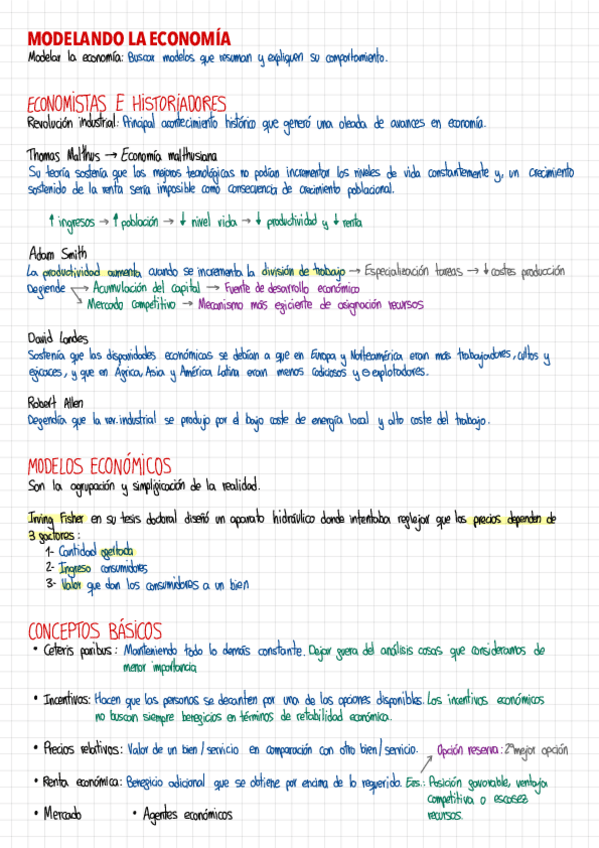 MODELANDO LA ECONOMÍA
Modelar la economía: Buscar modelos que resuman y expliquen su comportamiento.
ECONOMISTAS E HISTORIADORES
Revolución industrial: Principal acontecimiento histórico que generó una oleada de avances en economía.
Thomas Malthus → Economía malthusiana
Su teoría sostenía que las mejoras tecnológicas no podían incrementar los niveles de vida constantemente y, un crecimiento
sostenido de la renta sería imposible como consecuencia de crecimiento poblacional.
↑ ingresos → ↑ población → ↓ nivel vida → ↓ productividad y ↓ renta
Adam Smith
La productividad aumenta cuando se incrementa la división de trabajo → Especialización tareas → ↓ costes producción
Depende → Acumulación del capital → Fuente de desarrollo económico
Mercado competitivo → Mecanismo más eficiente de asignación recursos
David Landes
Sostenía que las disparidades económicas se debían a que en Europa y Norteamérica eran más trabajadores, cultos y
eficaces, y que en África, Asia y América Latina eran menos codiciosos y ⊖ explotadores.
Robert Allen
Defendía que la rev. industrial se produjo por el bajo coste de energía local y alto coste del trabajo.
MODELOS ECONÓMICOS
Son la agrupación y simplificación de la realidad.
Irving Fisher en su tesis doctoral diseñó un aparato hidráulico donde intentaba reflejar que los precios dependen de
3 factores:
1- Cantidad ofertada
2- Ingreso consumidores
3- Valor que dan los consumidores a un bien
CONCEPTOS BÁSICOS
• Ceteris paribus: Manteniendo todo lo demás constante. Dejar fuera del análisis cosas que consideramos de
menor importancia
• Incentivos: Hacen que las personas se decanten por una de las opciones disponibles. Los incentivos económicos
no buscan siempre beneficios en términos de retabilidad económica.
• Precios relativos: Valor de un bien/servicio en comparación con otro bien/servicio. Opción reserva: 2ª mejor opción
• Renta económica: Beneficio adicional que se obtiene por encima de lo requerido. Ees.: Posición favorable, ventaja
competitiva o escasez
recursos.
• Mercado • Agentes económicos